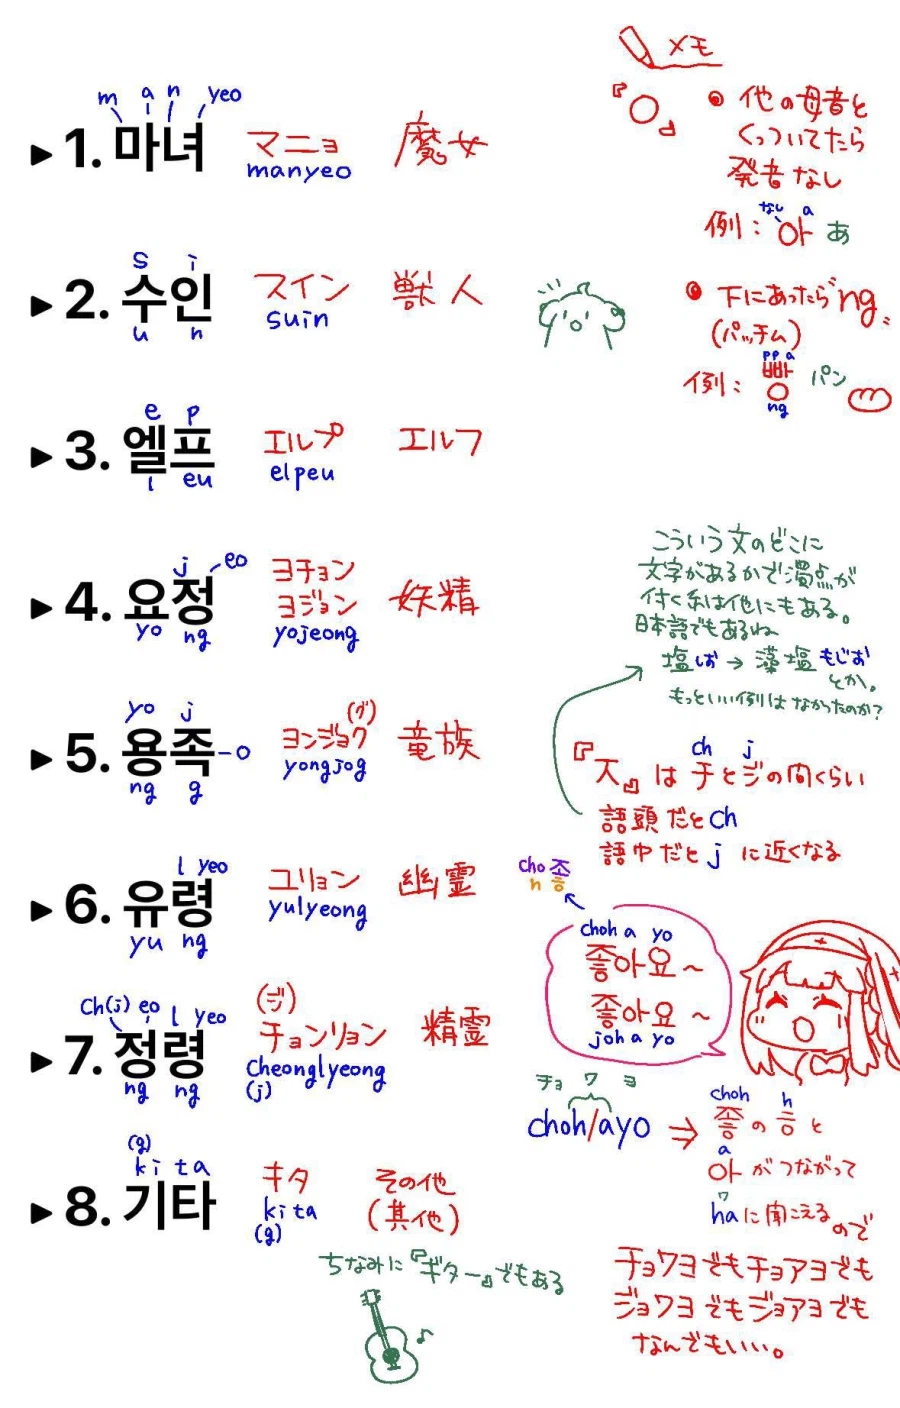 m a n yeo
▶ 1. 마녀 マニョ 魔女
manyeo
s i
▶ 2. 수인 スイン 獣人
u n suin
e p
▶ 3. 엘프 エルプ エルフ
l eu elpeu
j eo ヨチョン
▶ 4. 요정 ヨジョン 妖精
yo ng yojeong
yo j (グ)
▶ 5. 용족 -o ヨンジョク 竜族
ng g yongjog
l yeo
▶ 6. 유령 ユリョン 幽霊
yu ng yulyeong
Ch(j) eo l yeo (ジ)
▶ 7. 정령 チョンリョン 精霊
ng ng Cheonglyeong
(j)
(g)
ki ta
▶ 8. 기타 キタ その他
kita (其他)
(g)
ちなみに『ギター』でもある
メモ
『○』
● 他の母音と
くっついてたら
発音なし
なし a
例: 아 あ
● 下にあったら"ng"
(パッチム)
pp a
例: 빵 パン
ng
こういう文のどこに
文字があるかで濁点が
付く系は他にもある。
日本語でもあるね
塩しお → 藻塩もじお
とか。
もっといい例はなかったのか?
ch j
『ス』はチとジの間くらい
語頭だとch
語中だとjに近くなる
cho 조
h ㅎ
choh a yo
좋아요~
좋아요~
joh a yo
チョ ワ ヨ
choh/ayo ⇒
choh h
좋のㅎと
a
아がつながって
ワ
haに聞こえるので
チョワヨでもチョアヨでも
ジョワヨでもジョアヨでも
なんでもいい。